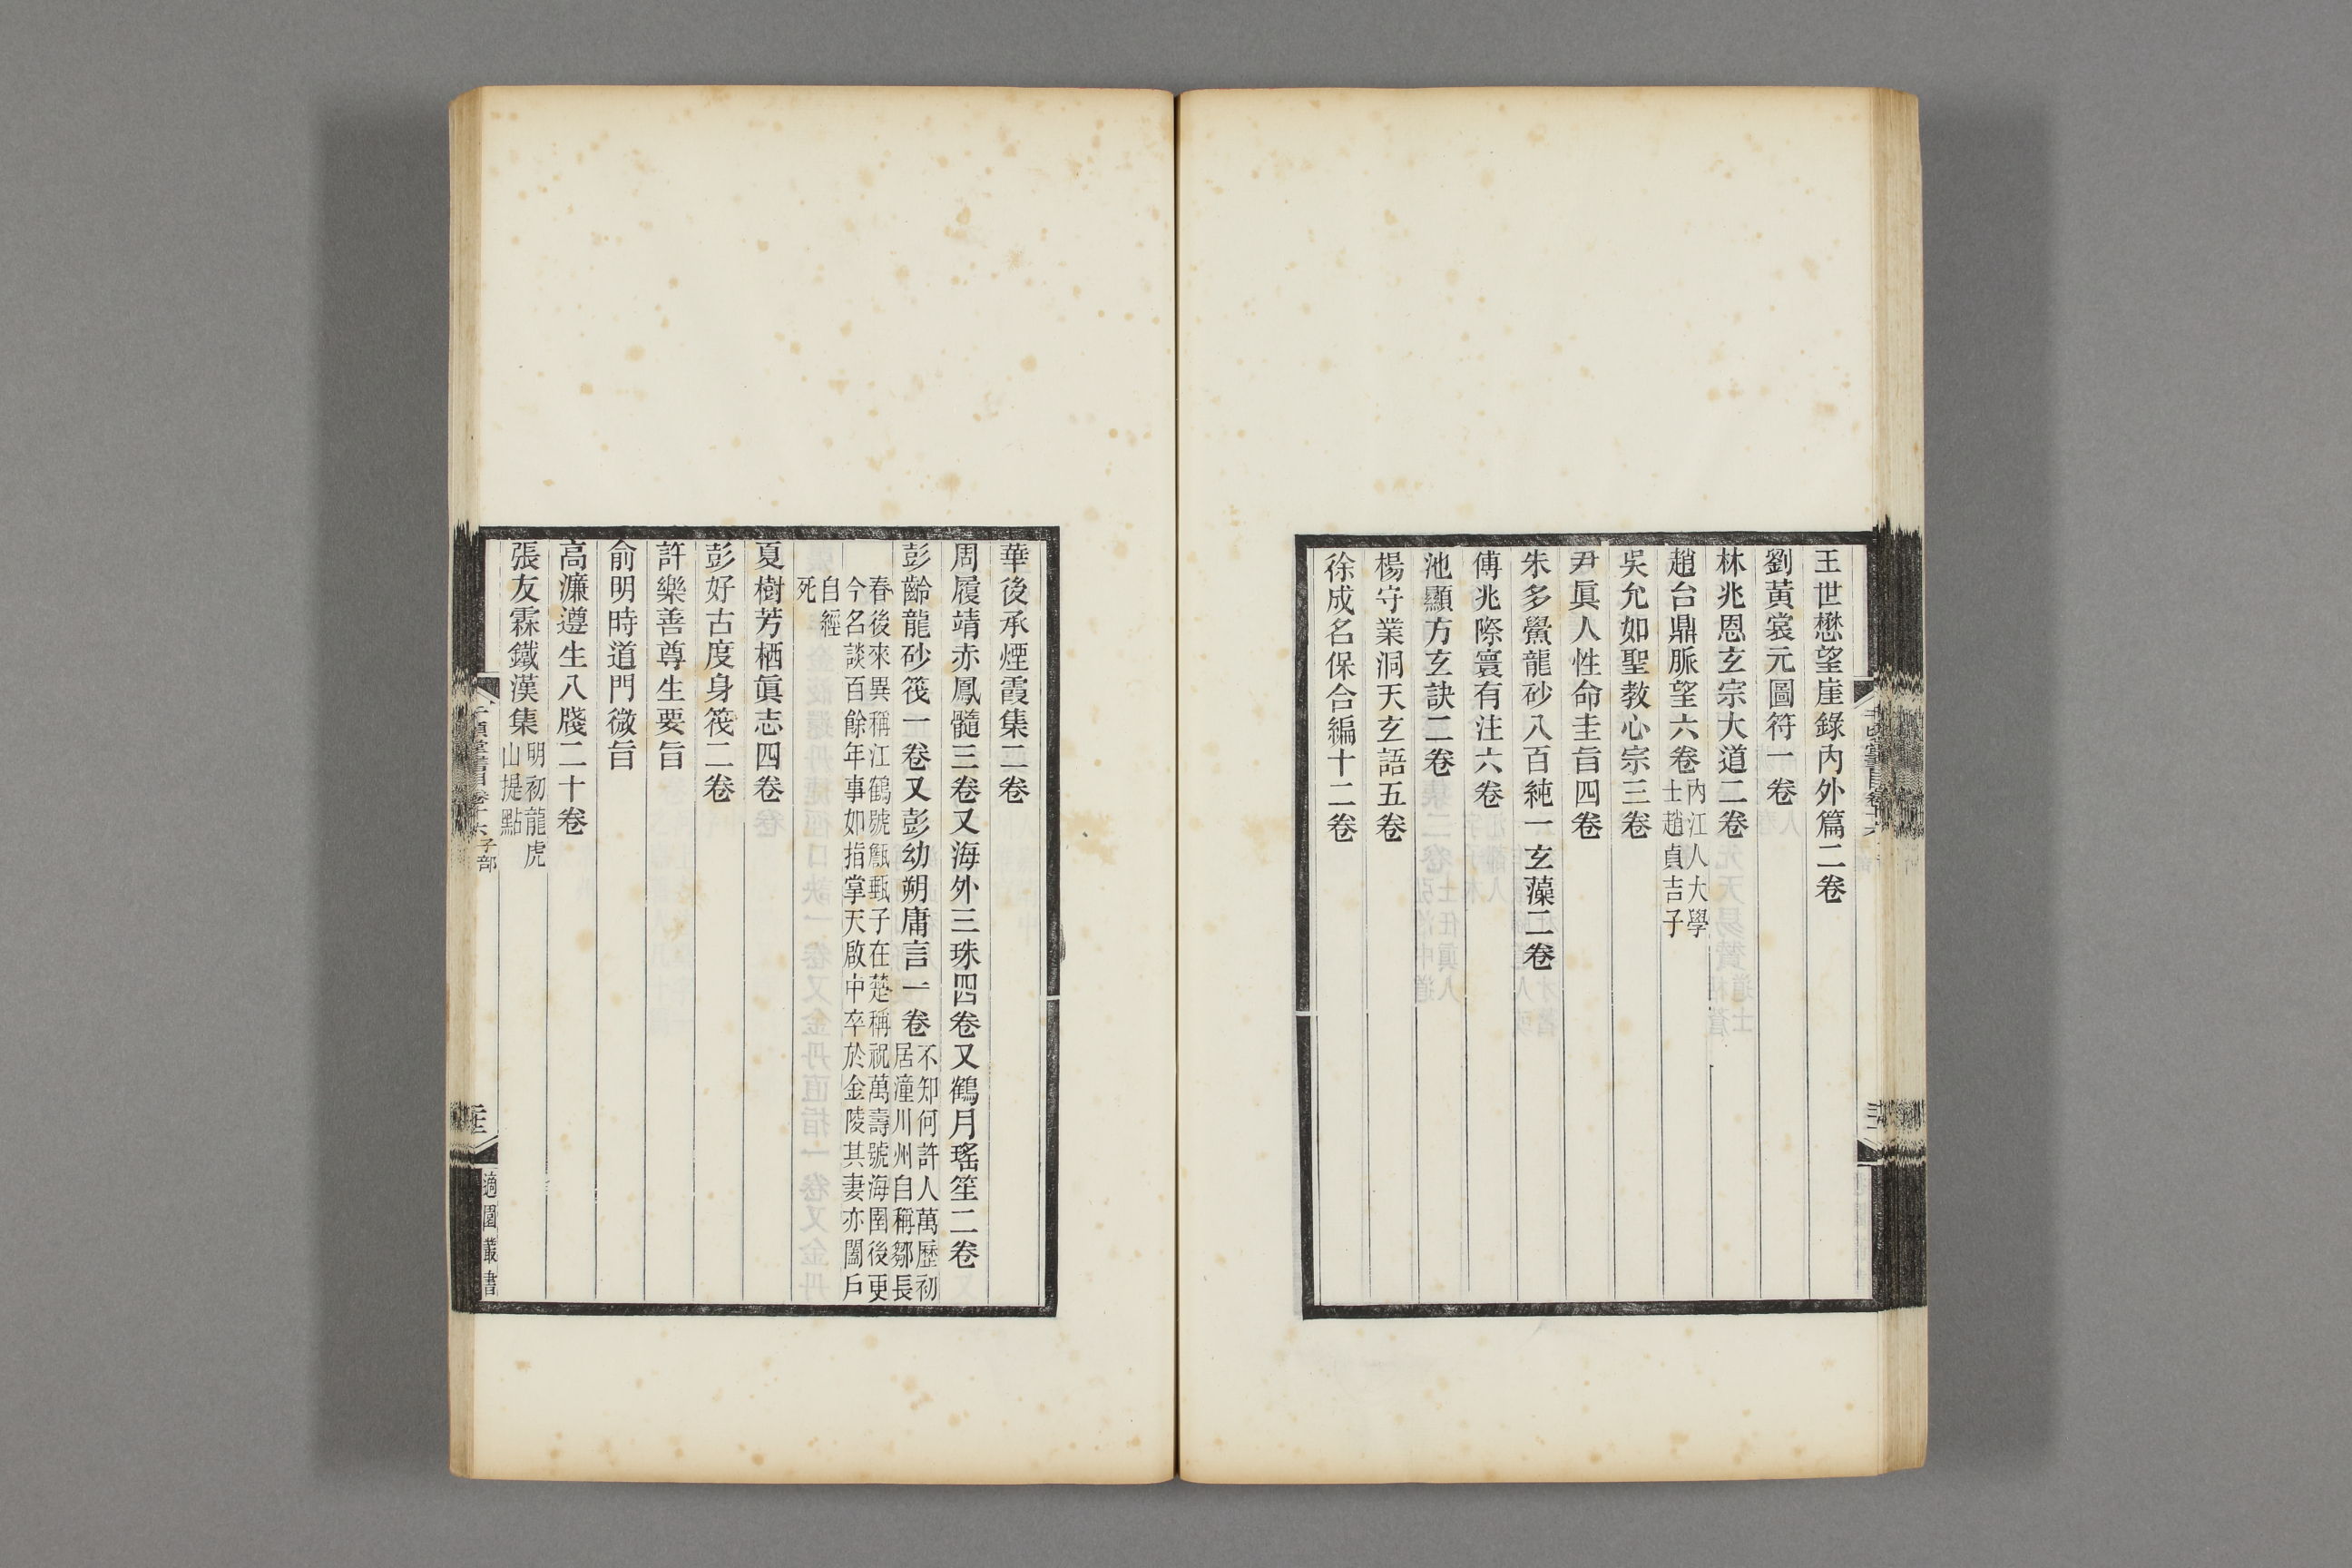 王世懋望崖錄內外篇二卷
劉黃裳元圖符一卷
林兆恩玄宗大道二卷
趙台鼎脈望六卷內江人大學
士趙貞吉子
吳允如聖教心宗三卷
尹眞人性命圭旨四卷
朱多𤅢龍砂八百純一玄藻二卷
傅兆際寰有注六卷
池顯方玄訣二卷
楊守業洞天玄語五卷
徐成名保合編十二卷
華後承煙霞集二卷
周履靖赤鳳髓三卷又海外三珠四卷又鶴月瑤笙二卷
彭齡龍砂筏一卷又彭幼朔庸言一卷不知何許人萬歷初
居潼川州自稱鄒長
春後來異稱江鶴號甔甀子在楚稱祝萬壽號海圍後更
今名談百餘年事如指掌天啟中卒於金陵其妻亦闔戶
自經
死
夏樹芳栖眞志四卷
彭好古度身筏二卷
許樂善尊生要旨
俞明時道門微旨
高濂遵生八牋二十卷
張友霖鐵漢集明初龍虎
山提點
千頃堂書目卷十六子部
適園叢書